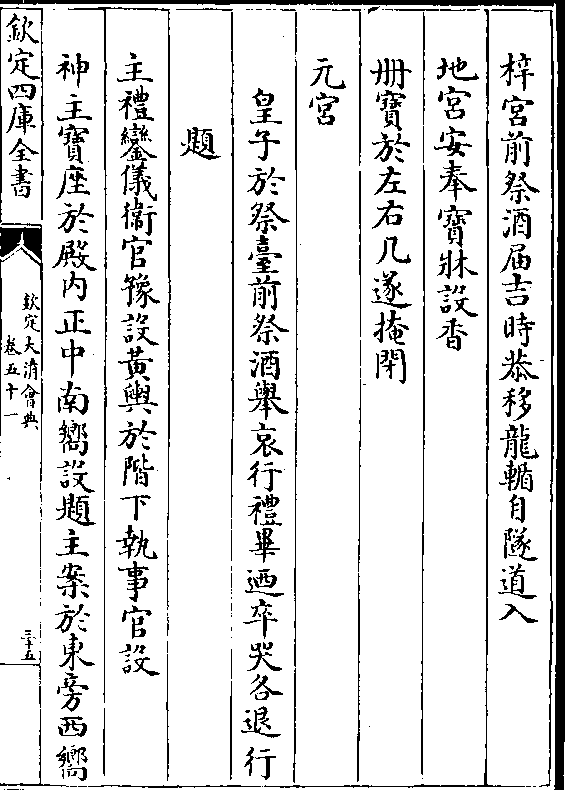 梓宮前祭酒届吉時恭移龍輴自隧道入
地宮安奉寶牀設香
册寶於左右几遂掩閉
元宮
皇子於祭臺前祭酒舉哀行禮畢迺卒哭各退行
題
主禮鑾儀衞官豫設黃輿於階下執事官設
神主寶座於殿内正中南嚮設題主案於東旁西嚮
欽定四庫全書
欽定大清會典
卷五十一
三十五